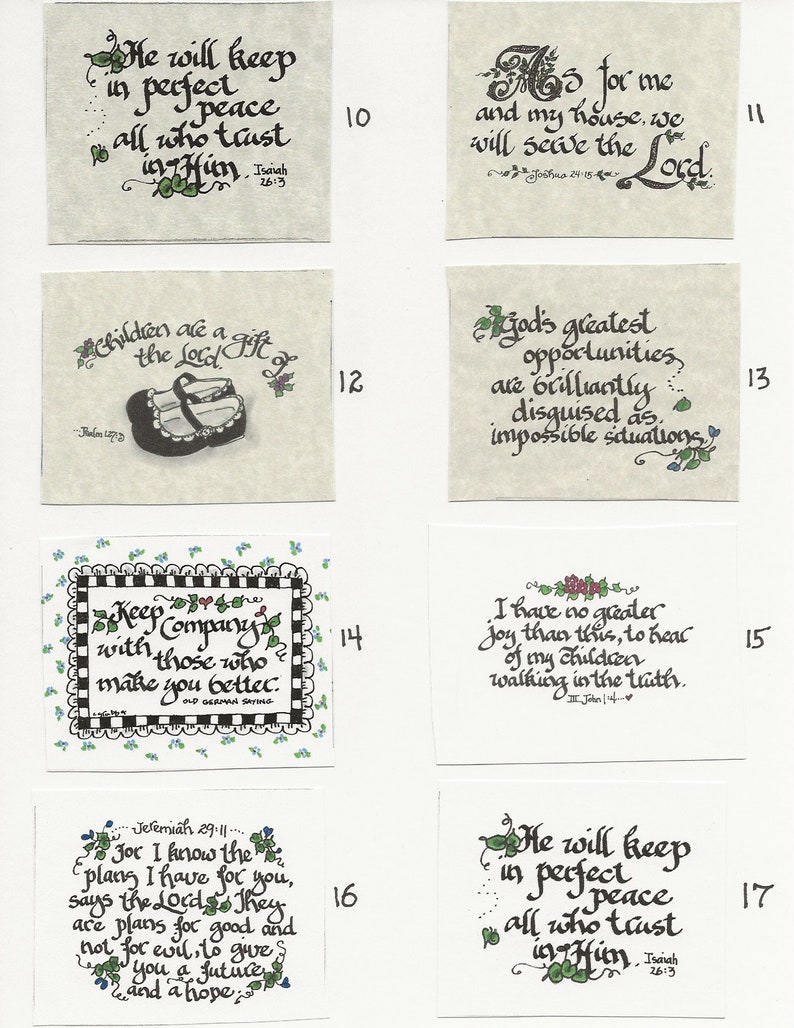 He will keep
in perfect
peace
all who trust
in Him.
Isaiah
26:3
10
As for me
and my house, we
will serve the
Lord.
Joshua 24:15
11
Children are a gift of
the Lord.
...Psalm 127:3
12
God's greatest
opportunities
are brilliantly
disguised as
impossible situations.
13
Keep
Company
with
those who
make you better.
OLD GERMAN SAYING
14
I have no greater
joy than this, to hear
of my children
walking in the truth.
III John 1:4...
15
...Jeremiah 29:11....
For I know the
plans I have for you,
says the Lord. They
are plans for good and
not for evil, to give
you a future
and a hope.
16
He will keep
in perfect
peace
all who trust
in Him.
Isaiah
26:3
17